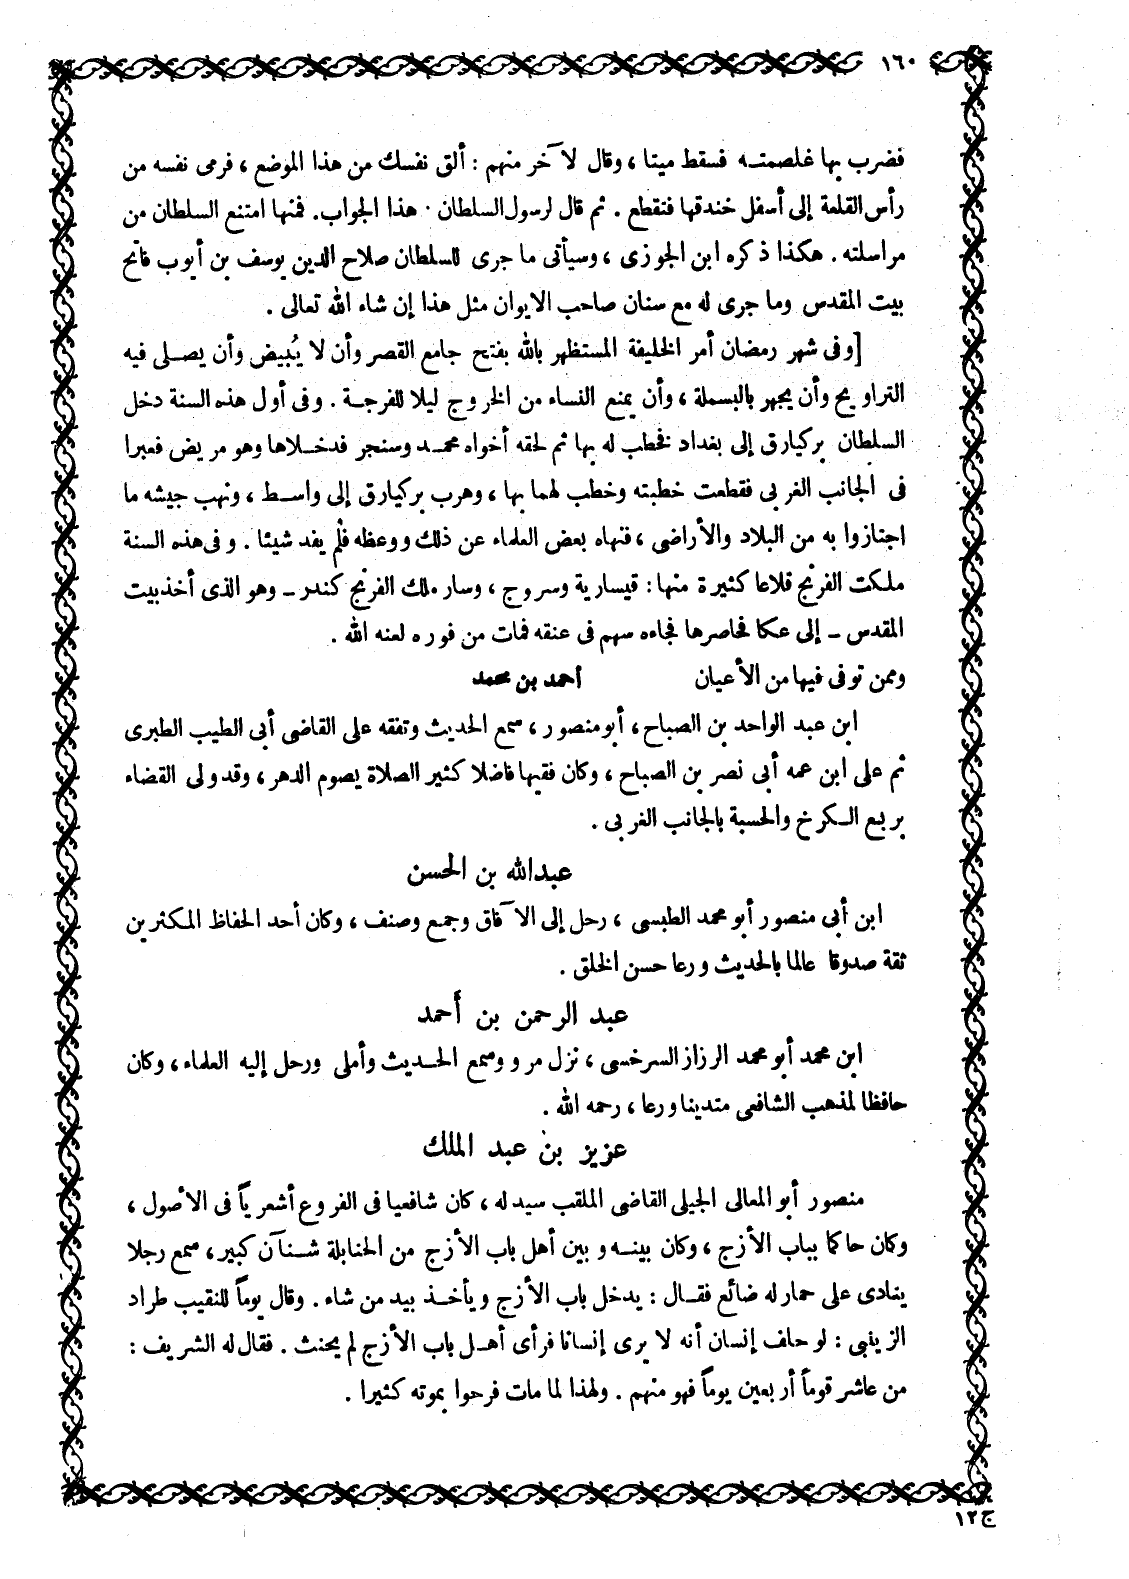 ١٦٠
فضرب بها غلصمتــه فسقط ميتا ، وقال لآخر منهم : ألق نفسك من هذا الموضع ، فرمى نفسه من
رأس القلعة إلى أسفل خندقها فتقطع . ثم قال لرسول السلطان . هذا الجواب. فمنها امتنع السلطان من
مراسلته . هكذا ذكره ابن الجوزى ، وسيأتى ما جرى للسلطان صلاح الدين يوسف بن أيوب فاتح
بيت المقدس وما جرى له مع سنان صاحب الايوان مثل هذا إن شاء الله تعالى .
[وفى شهر رمضان أمر الخليفة المستظهر بالله بفتح جامع القصر وأن لا يُبيض وأن يصــلى فيه
التراويح وأن يجهر بالبسملة ، وأن يمنع النساء من الخروج ليلا للفرجــة . وفى أول هذه السنة دخل
السلطان بركيارق إلى بغداد فخطب له بها ثم لحقه أخواه محمــد وسنجر فدخــلاها وهو مريض فعبرا
فى الجانب الغربى فقطعت خطبته وخطب لهما بها ، وهرب بركيارق إلى واســط ، ونهب جيشه ما
اجتازوا به من البلاد والأراضى ، فنهاه بعض العلماء عن ذلك ووعظه فلم يفد شيئا . وفى هذه السنة
ملكت الفرنج قلاعا كثيرة منها : قيسارية وسروج ، وسار ملك الفرنج كندر ــ وهو الذى أخذ بيت
المقدس ــ إلى عكا فحاصرها فجاءه سهم فى عنقه فمات من فوره لعنه الله .
وممن توفى فيها من الأعيان أحمد بن محمد
ابن عبد الواحد بن الصباح ، أبو منصور ، سمع الحديث وتفقه على القاضى أبى الطيب الطبرى
ثم على ابن عمه أبى نصر بن الصباح ، وكان فقيها فاضلا كثير الصلاة يصوم الدهر ، وقد ولى القضاء
بربع الــكرخ والحسبة بالجانب الغربى .
عبدالله بن الحسن
ابن أبى منصور أبو محمد الطبسى ، رحل إلى الآفاق وجمع وصنف ، وكان أحد الحفاظ المكثرين
ثقة صدوقا عالما بالحديث ورعا حسن الخلق .
عبد الرحمن بن أحمد
ابن محمد أبو محمد الرزاز السرخسى ، نزل مرو وسمع الحــديث وأملى ورحل إليه العلماء ، وكان
حافظا لمذهب الشافعى متدينا ورعا ، رحمه الله .
عزيز بن عبد الملك
منصور أبو المعالى الجيلى القاضى الملقب سيدله ، كان شافعيا فى الفروع أشعرياً فى الأصول ،
وكان حاكما بباب الأزج ، وكان بينــه وبين أهل باب الأزج من الحنابلة شــنآن كبير ، سمع رجلا
ينادى على حمار له ضائع فقــال : يدخل باب الأزج ويأخــذ بيد من شاء . وقال يوماً للنقيب طراد
الزينبى : لو حلف إنسان أنه لا يرى إنسانا فرأى أهــل باب الأزج لم يحنث . فقال له الشريف :
من عاشر قوماً أربعين يوماً فهو منهم . ولهذا لما مات فرحوا بموته كثيرا .
ج١٢